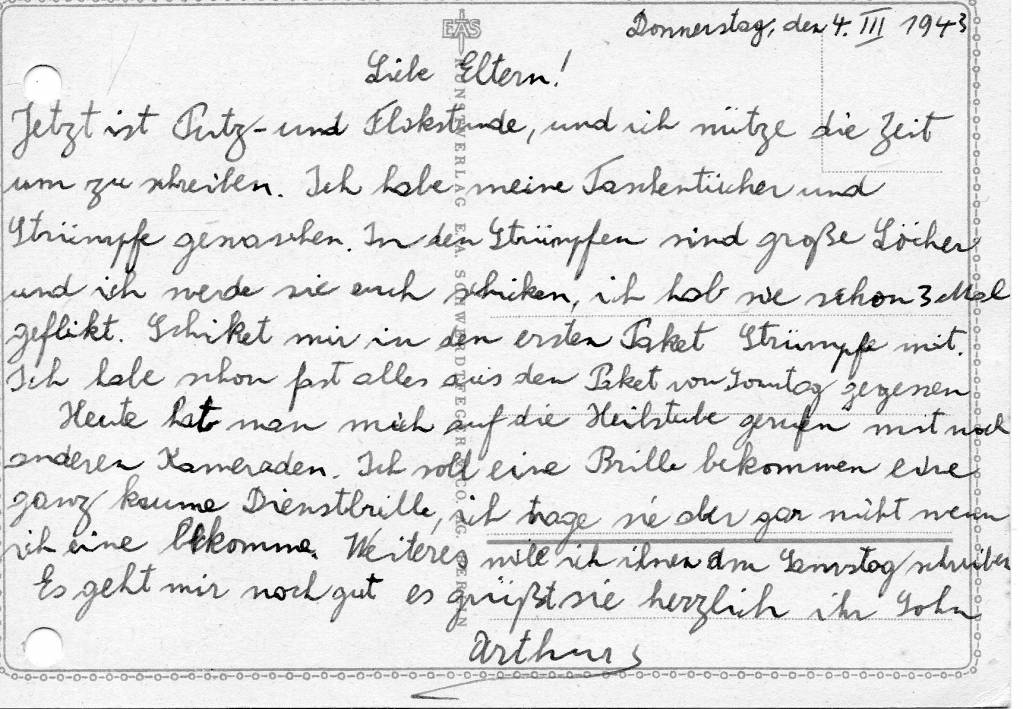 Donnerstag, den 4. III 1943
Liebe Eltern!
Jetzt ist Putz- und Flickstunde, und ich nütze die Zeit
um zu schreiben. Ich habe meine Taschentücher und
Strümpfe gewaschen. In den Strümpfen sind große Löcher
und ich werde sie euch schicken, ich hab sie schon 3 Mal
geflikt. Schiket mir in den ersten Paket Strümpfe mit.
Ich habe schon fast alles aus den Paket von Sonntag gegessen
Heute hat man mich auf die Heilstube gerufen mit noch
anderen Kameraden. Ich soll eine Brille bekommen eine
ganz Dienstbrille, ich trage sie aber gar nicht wenn
ich eine bekomme. Weiteres will ich ihnen am Samstag schreiben
Es geht mir noch gut es grüßt sie herzlich ihr Sohn
Arthur
EAS
KUNSTVERLAG E.A. SCHWERDTFEGER & CO. AG. BERLIN